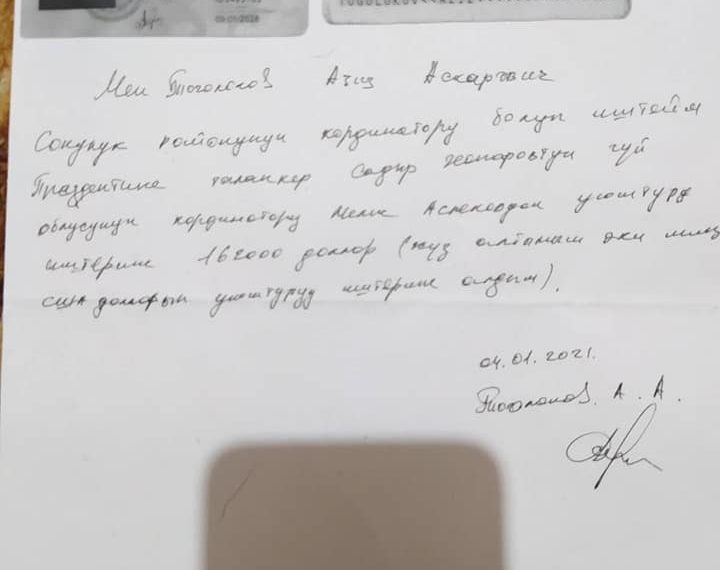 09.01.2028
Мен Тоголоков Азиз Аскарович
Сокулук районунун кординатору болуп иштейм
Праздентика талапкер Садыр Жапаровтун чуй
облусунун кординатору Мелис Аспековдон уюштуруу
иштерине 162000 доллор (жуз алтымыш эки миң
сша долларын уюштуруу иштерине алдым).
04.01.2021.
Тоголоков. А. А.